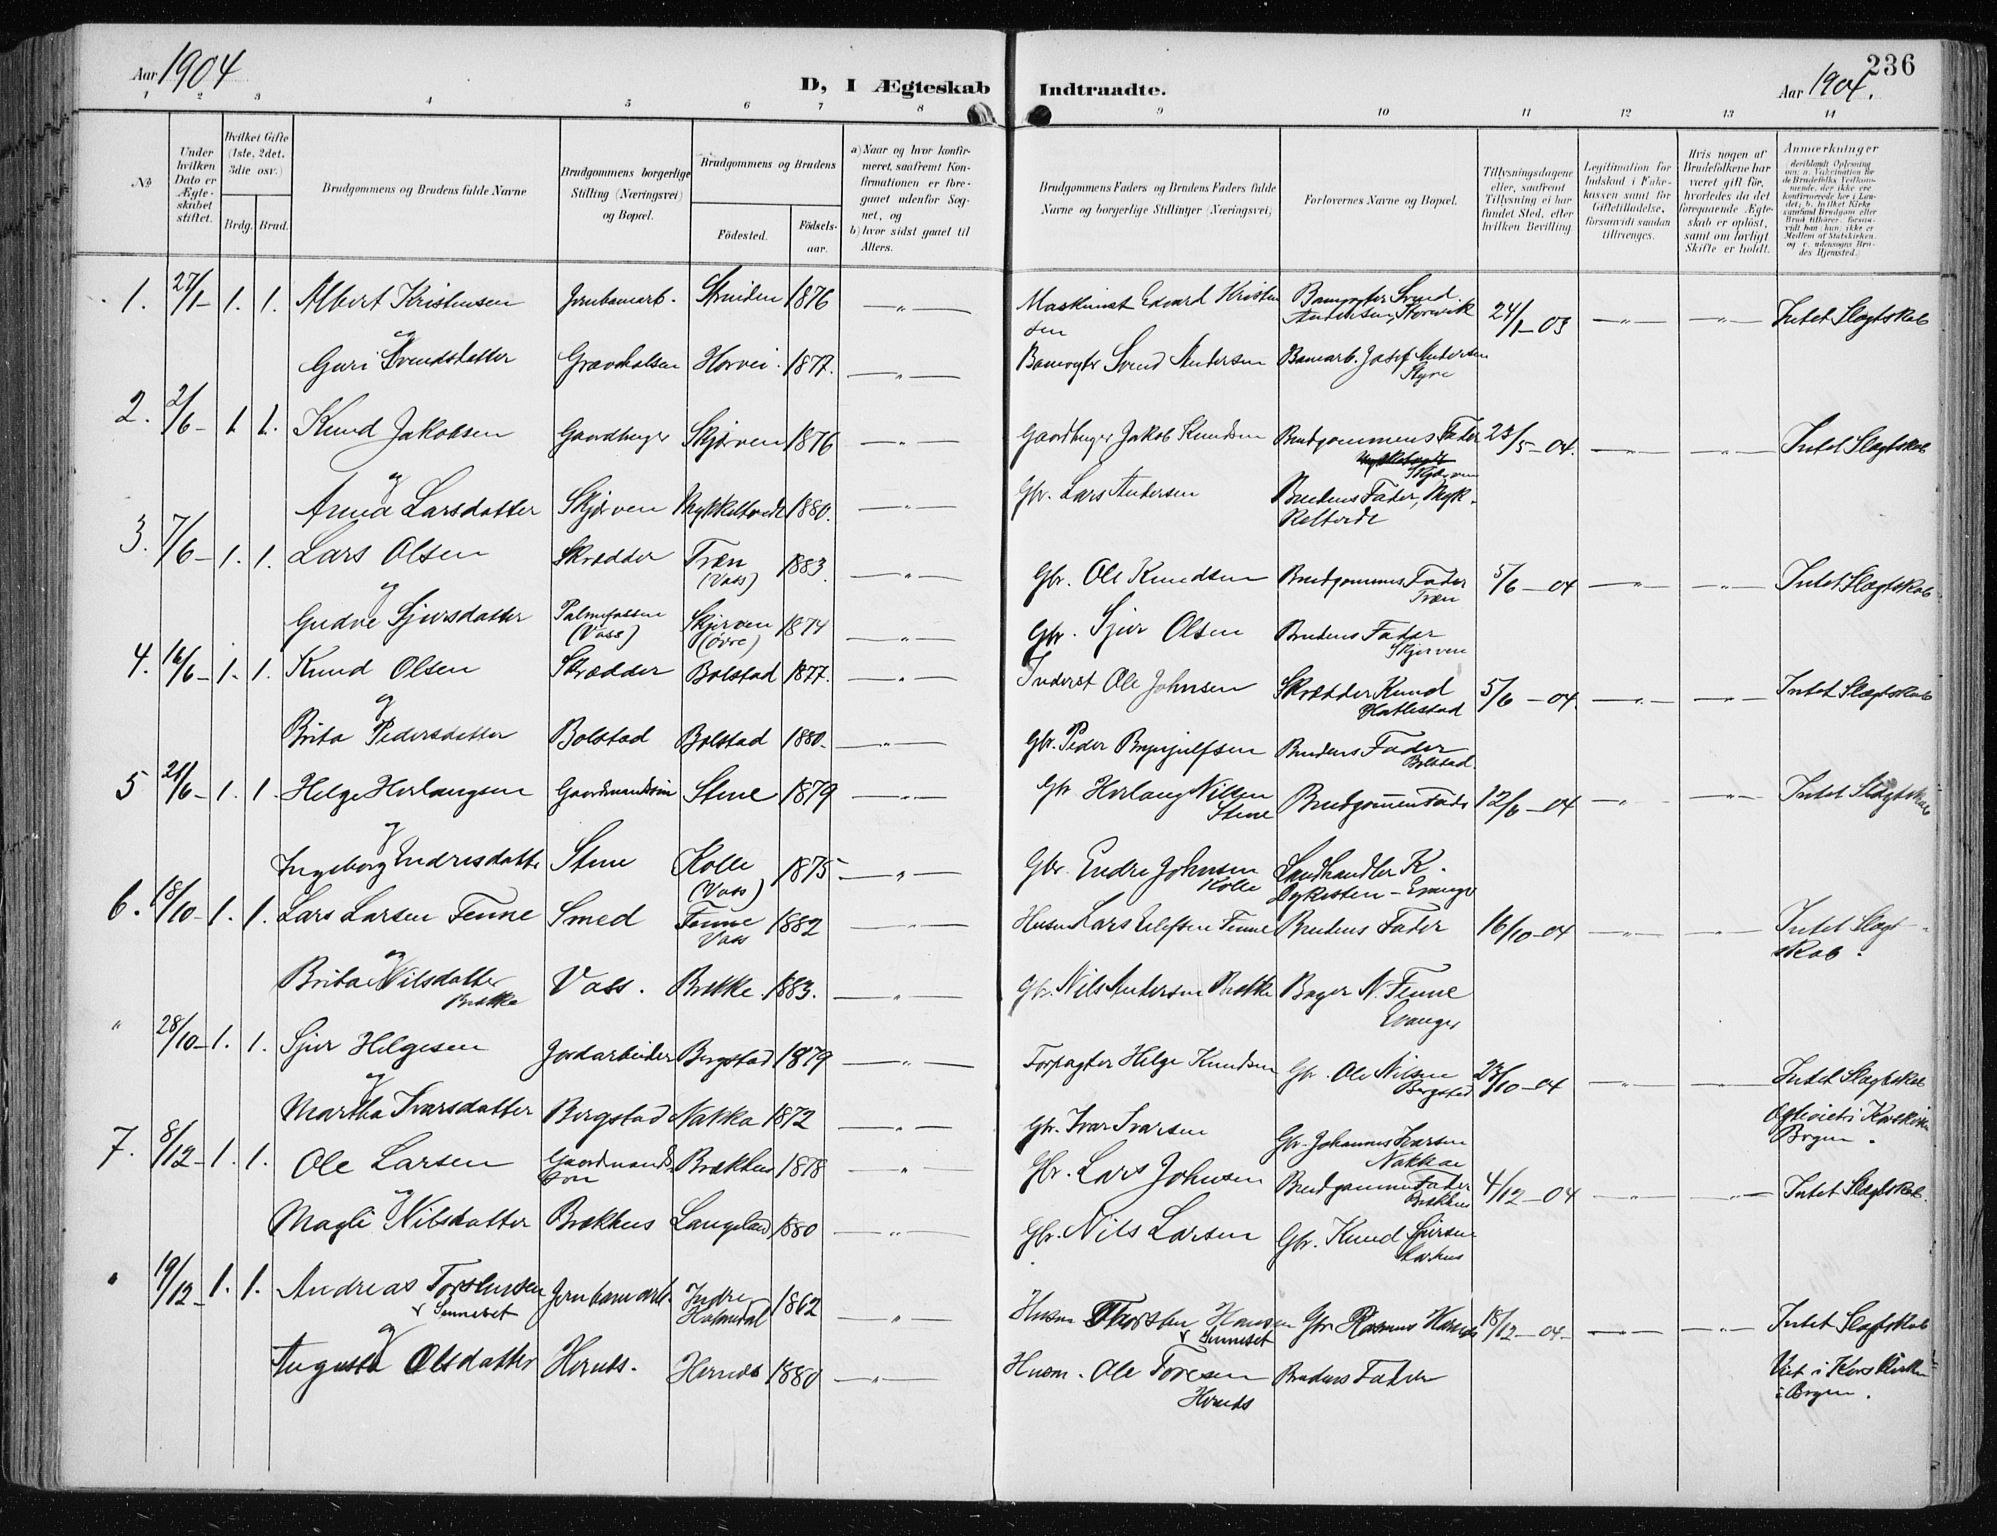 236
Aar 1904
D, I Ægteskab Indtraadte.
Aar 1904.
1 2 3 4 5 6 7 8 9 10 11 12 13 14
No
Under hvilken Dato er Ægteskabet stiftet.
Hvilket Gifte (1ste, 2det, 3die osv.)
Brdg. Brud.
Brudgommens og Brudens fulde Navne
Brudgommens borgerlige Stilling (Næringsvei) og Bopæl.
Brudgommens og Brudens
Fødested.
Fødsels-aar.
a) Naar og hvor konfirmeret, saafremt Konfirmationen er foreganet udenfor Sognet, og
b) hvor sidst ganet til Alters.
Brudgommens Faders og Brudens Faders fulde Navne og borgerlige Stillinger (Næringsvei)
Forlovernes Navne og Bopæl.
Tillysningsdagene eller, saafremt Tillysning ei har fundet Sted, efter hvilken Bevilling.
Legitimation for Indskud i Enkekassen samt for Giftetilladelse, forsaavidt saadan tiltrænges.
Hvis nogen af Brudefolkene har været gift før, hvorledes da det foregaaende Ægteskab er opløst, samt om lovligt Skifte er holdt.
Anmærkninger
1. 27/1 - 1. 1. Albert Kristensen Jernbanearb. 1876 — " — Maskinist Edvard Kristensen Banevogter Svend Andersen, 24/1 - 03 — " — — " — Intet Slægtskab
og
Guri Svendsdatter Gravehalsen Horvei. 1877. — " — Banvogter Svend Andersen Banearb. Josef Andersen
2. 2/6 - 1 1. Knud Jakobsen Gaardbruger Skjerven 1876 — " — Gaardbruger Jakob Knudsen Brudgommens Fader Skjerven 23/5 - 04. — " — — " — Intet Slægtskab
og
Anna Larsdatter Skjerven Mykkeltvedt 1880. — " — Gbr. Lars Andersen Brudens Fader,
3. 7/6 - 1. 1. Lars Olsen Skrædder Træn (Vass) 1883. — " — Gbr. Ole Knudsen Brudgommens Fader Træn 5/6 - 04 — " — — " — Intet Slægtskab
og
Gudve Sjursdatter Palmefossen (Vass) Skjerven (Øvre) 1874 — " — Gbr. Sjur Olsen Brudens Fader Skjerven
4. 16/6 - 1. 1. Knud Olsen Skrædder Bolstad 1877. — " — Inderst Ole Johnsen Skrædder Knud Hatlestad 5/6 - 04. — " — — " — Intet Slægtskab
og
Brita Pedersdatter Bolstad Bolstad 1880. — " — Gbr. Peder Brynjulfsen Brudens Fader Bolstad.
5 21/6 - 1. 1. Helge Herlaugsen Gaardmandssøn Stene 1879 — " — Gbr Herlaug Nilsen Stene Brudgommens Fader 12/6 - 04 — " — — " — Intet Slægtskab
og
Ingeborg Endresdatter Stene Kolle (Vass) 1875 — " — Gbr. Endre Johnsen Kolle Landhandler K. Dykesten - Evanger
6. 18/10 - 1. 1. Lars Larsen Tenne Smed Tenne Vass 1882 — " — Husm Lars Eilefsen Tenne Brudens Fader 16/10 - 04 — " — — " — Intet Slægtskab.
og
Brita Nilsdatter Brække Vass. Brække. 1883. — " — Gbr. Nils Andersen Brække Bager N. Tenne Evanger
" 28/10 - 1. 1. Sjur Helgesen Jordarbeider Bergstad 1879 — " — Forpagter Helge Knudsen Gbr. Ole Nilsen Bergstad 23/10 - 04 — " — — " — Intet Slægtskab
og
Martha Ivarsdatter Bergstad Nakka 1872 — " — Gbr. Ivar Ivarsen Gbr. Johannes Ivarsen Nakka Bergen.
7. 8/12 - 1. 1. Ole Larsen Gaardmandssøn Brækhus 1878 — " — Gbr. Lars Johnsen Brudgommens Fader Brækhus 4/12 - 04 — " — — " — Intet Slægtskab.
og
Magli Nilsdatter Brækhus Langeland 1880 — " — Gbr. Nils Larsen Gbr. Knud Sjursen
" 19/12 - 1. 1. Andreas Torstensen Jernbanearb. Indre Holmedal 1862 — " — Husm Thorsten Hansen Gbr Rasmus 18/12 - 04 — " — — " — Intet Slægtskab
og
Augusta Olsdatter Hernes. Hernes 1880 — " — Husm. Ole Toresen Hernes Brudens Fader Viet i Korskirken i Bergen.